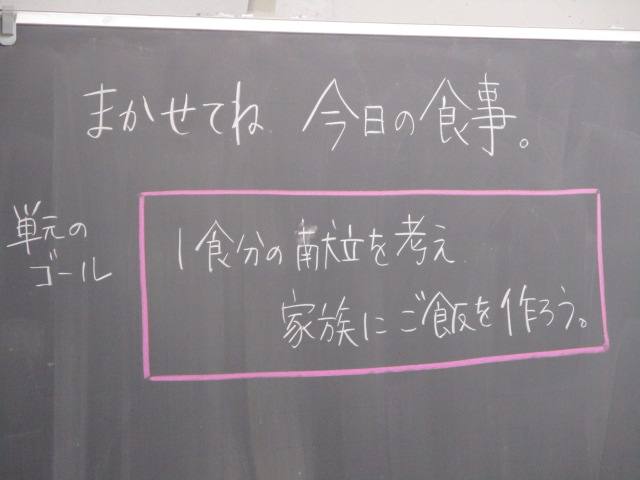 まかせてね 今日の食事。
単元の
ゴール
1食分の献立を考え
家族にご飯を作ろう。